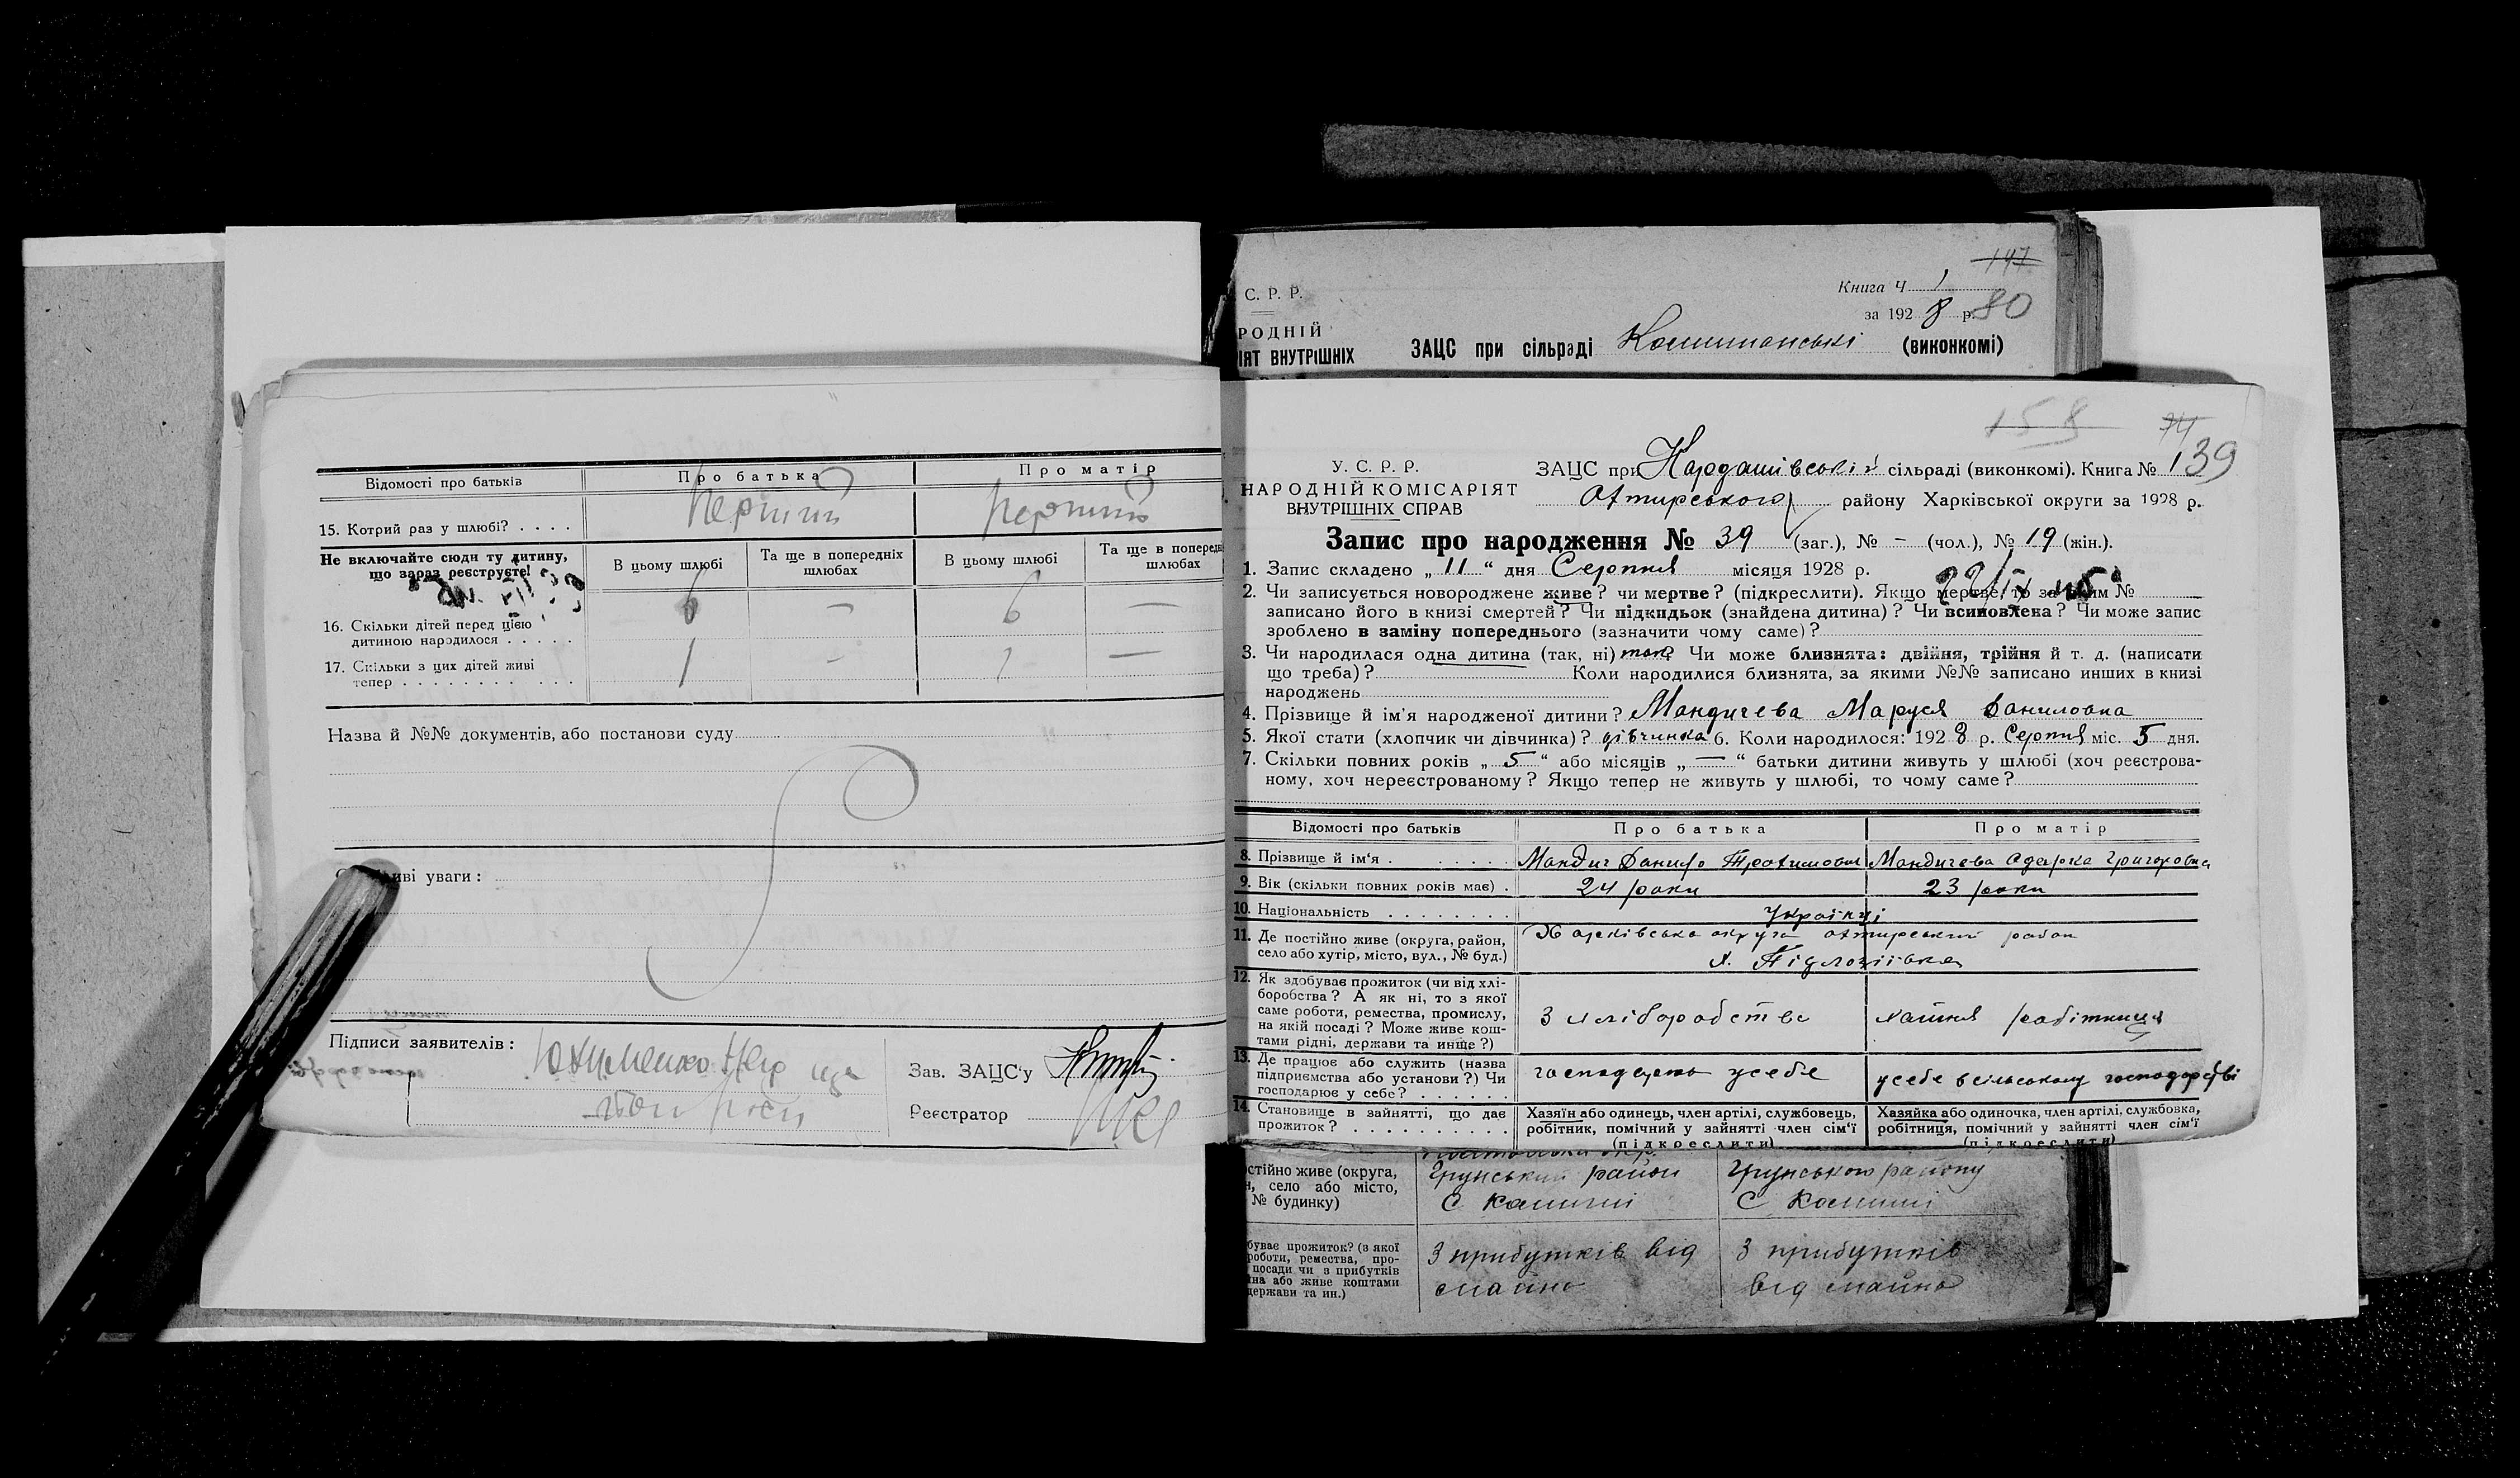 Відомості про батьків Про батька Про матір
15. Котрий раз у шлюбі? . . . . Перший Перший
Не включайте сюди ту дитину,
що зараз реєструєте!
В цьому шлюбі Та ще в попередніх шлюбах В цьому шлюбі Та ще в поперед шлюбах
16. Скільки дітей перед цією
дитиною народилося . . . . . 6 — 6 —
17. Скільки з цих дітей живі
тепер . . . . . . . . . . . 1 — 1 —
Назва й №№ документів, або постанови суду
иві уваги:
Підписи заявителів:
Зав. ЗАЦС'у
Реєстратор
147
С. Р. Р.
Книга Ч 1
за 1928 р. 80
РОДНІЙ
ІЯТ ВНУТРІШНІХ
ЗАЦС при сільраді (виконкомі)
158 74
У. С. Р. Р.
НАРОДНІЙ КОМІСАРІЯТ
ВНУТРІШНІХ СПРАВ
ЗАЦС при Кардашівській сільраді (виконкомі). Книга № 1 39
Охтирського району Харківської округи за 1928 р.
Запис про народження № 39 (заг.), № – (чол.), № 19 (жін.).
1. Запис складено „ 11 “ дня Серпня місяця 1928 р.
2. Чи записується новороджене живе? чи мертве? (підкреслити). Якщо мертве, то за яким №
записано його в книзі смертей? Чи підкидьок (знайдена дитина)? Чи всиновлена? Чи може запис
зроблено в заміну попереднього (зазначити чому саме)?
3. Чи народилася одна дитина (так, ні) так? Чи може близнята: двійня, трійня й т. д. (написати
що треба)? Коли народилися близнята, за якими №№ записано инших в книзі
народжень
4. Прізвище й ім'я народженої дитини? Мандичева Маруся Даниловна
5. Якої стати (хлопчик чи дівчинка)? дівчинка 6. Коли народилося: 1928 р. Серпня міс. 5 дня.
7. Скільки повних років „ 5 “ або місяців „ — “ батьки дитини живуть у шлюбі (хоч реєстрова-
ному, хоч нереєстрованому? Якщо тепер не живуть у шлюбі, то чому саме?
Відомості про батьків Про батька Про матір
8. Прізвище й ім'я . . . . . . Мандич Данило Мандичева Одарка Григоровна
9. Вік (скільки повних років має) . 24 роки 23 роки
10. Національність . . . . . . . . Українці
11. Де постійно живе (округа, район,
село або хутір, місто, вул., № буд.)
Харківська округа Охтирський район
х. Підлозіївка
12. Як здобуває прожиток (чи від хлі-
боробства? А як ні, то з якої
саме роботи, ремества, промислу,
на якій посаді? Може живе кош-
тами рідні, держави та инше?)
З хліборобства хатня робітниця
13. Де працює або служить (назва
підприємства або установи?) Чи
господарює у себе? . . . . . .
господарює усебе
усебе в сільському господарстві
14. Становище в зайнятті, що дає
прожиток? . . . . . . . . . .
Хазяїн або одинець, член артілі, службовець,
робітник, помічний у зайнятті член сім'ї
(підкреслити)
Хазяйка або одиночка, член артілі, службовка,
робітниця, помічний у зайнятті член сім'ї
(підкреслити)
стійно живе (округа,
н, село або місто,
№ будинку)
Грунський район
С Комиші
Грунського району
С Комиші
буває прожиток? (з якої
роботи, ремества, про-
посади чи з прибутків
на або живе коштами
держави та ин.)
З прибутків від
майна
З прибутків
від майна